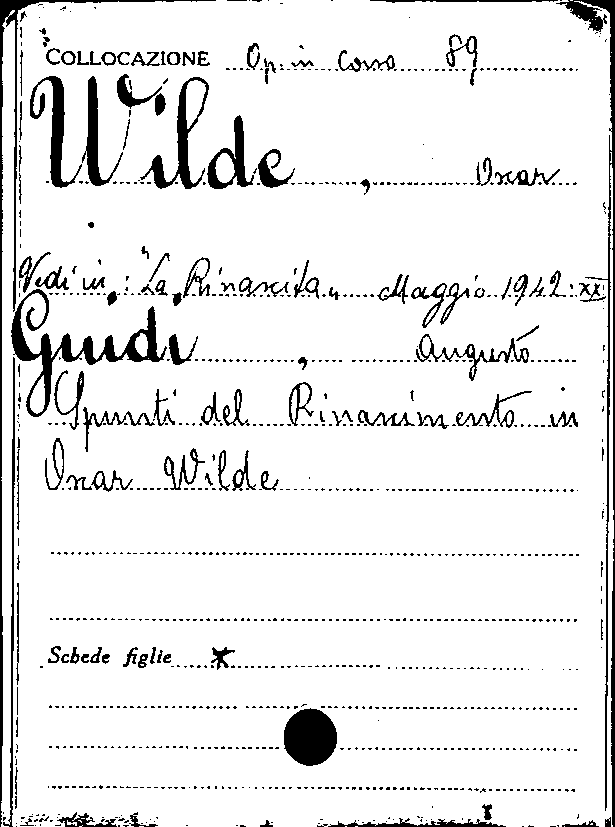 COLLOCAZIONE Op. in corso 89
Wilde, Oscar
Vedi in: "La Rinascita" Maggio 1942·XX
Guidi, Augusto
Spunti del Rinascimento in
Oscar Wilde
Schede figlie *